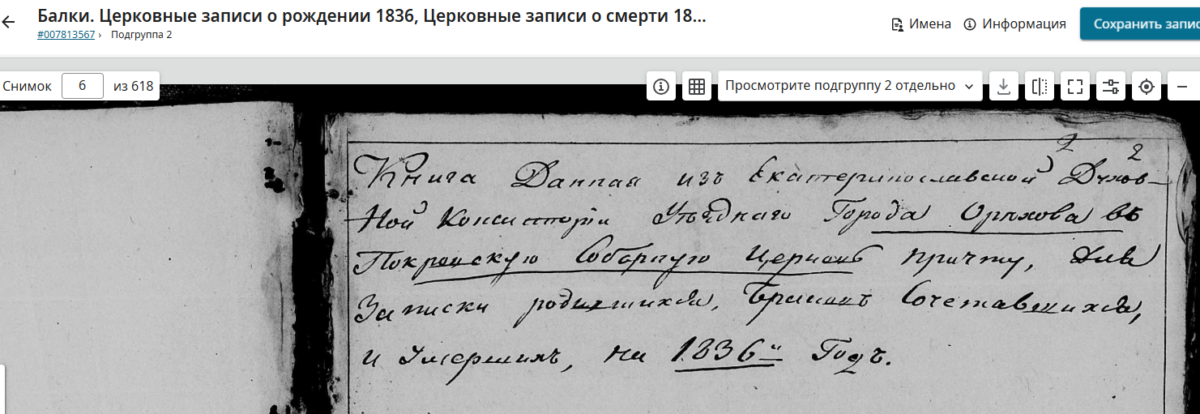 Балки. Церковные записи о рождении 1836, Церковные записи о смерти 18...
#007813567 › Подгруппа 2
Имена
Информация
Сохранить запис
Снимок 6 из 618
Просмотрите подгруппу 2 отдельно
2
Книга Данная изъ Екатеринославской Духов-
ной Консисторіи Уѣзднаго Города Орѣхова въ
Покровскую Соборную Церковь причту, для
Записки родившихся, бракомъ Сочетавшихся,
и Умершихъ, на 1836й Годъ.